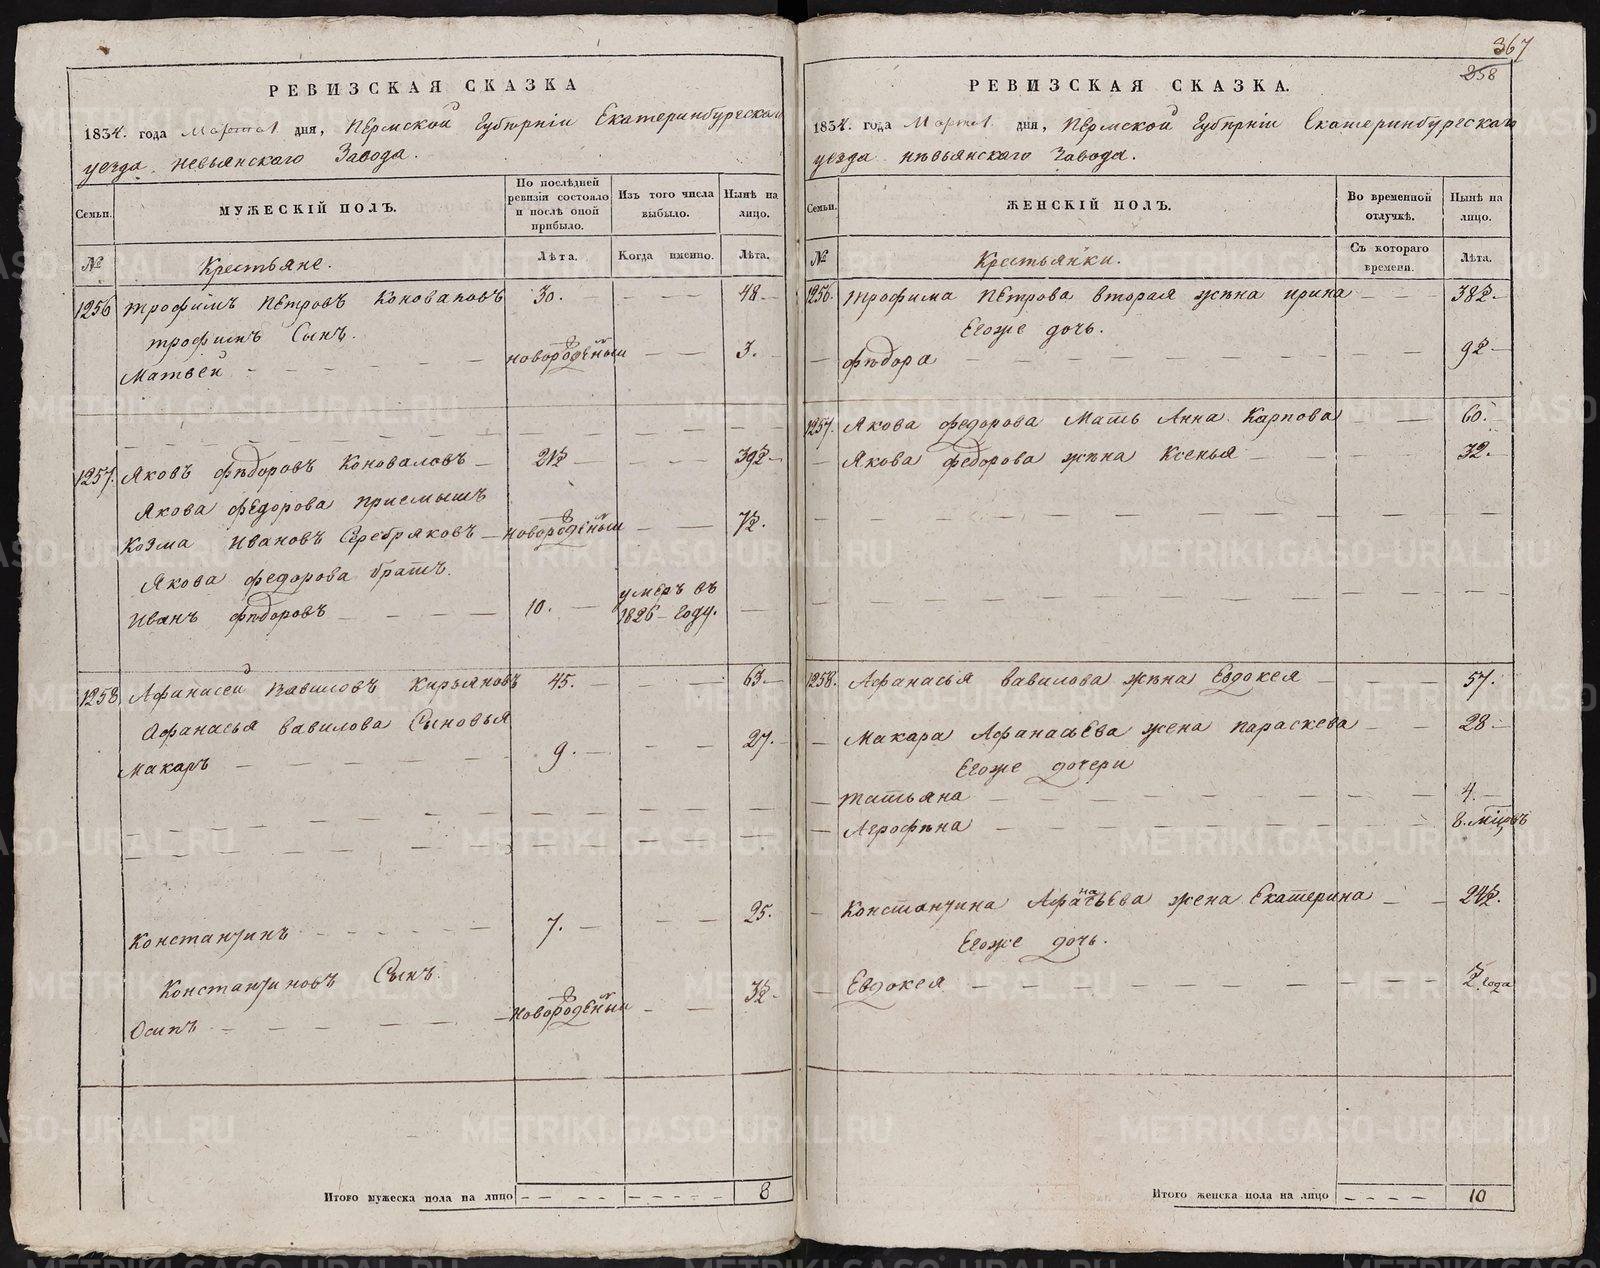 367
258
РЕВИЗСКАЯ СКАЗКА
1834. года Марта 1 дня, Пермской Губернiи Екатеринбургскаго
уезда Невьянскаго Завода.
Семьи.
МУЖЕСКІЙ ПОЛЪ.
По послѣдней ревизіи состояло и послѣ оной прибыло.
Изъ того числа выбыло.
Нынѣ на лицо.
№
Крестьяне.
Лѣта.
Когда именно.
Лѣта.
1256 Трофимъ Петровъ Коноваловъ 30. 48
Трофимъ Сынъ.
Матвей новорожденый 3.
1257. Яковъ Федоровъ Коноваловъ 21½ 39½
Якова Федорова приемышъ
Козма Ивановъ Серебряковъ новорожденый 7½.
Якова Федорова братъ.
Иванъ Федоровъ 10. умеръ въ
1826 году.
1258 Афанасей Вавиловъ Кирьяновъ 45. 63
Афанасья Вавилова Сыновья
Макаръ 9. 27.
Константинъ 7. 25.
Константиновъ Сынъ.
Осипъ новорожденый 3½
Итого мужеска пола на лицо 8
РЕВИЗСКАЯ СКАЗКА.
1834. года Марта 1 дня, Пермской Губернiи Екатеринбургскаго
уезда Невьянскаго Завода.
Семьи.
ЖЕНСКІЙ ПОЛЪ.
Во временной отлучкѣ.
Нынѣ на лицо.
№
Крестьянки.
Съ котораго времени.
Лѣта.
1256. Трофима Петрова вторая жена Ирина 38½
Егоже дочь.
Федора 9½
1257. Якова Федорова Мать Анна Карпова 60.
Якова Федорова жена Ксенья 32.
1258. Афанасья Вавилова жена Евдокея 57.
Макара Афанасьева жена Параскева 28
Егоже дочери
Татьяна 4.
Агрофена 8. мцовъ
Константина Афанасьева жена Екатерина 24½.
Егоже дочь.
Евдокея ½ года
Итого женска пола на лицо 10
METRIKI.GASO-URAL.RU